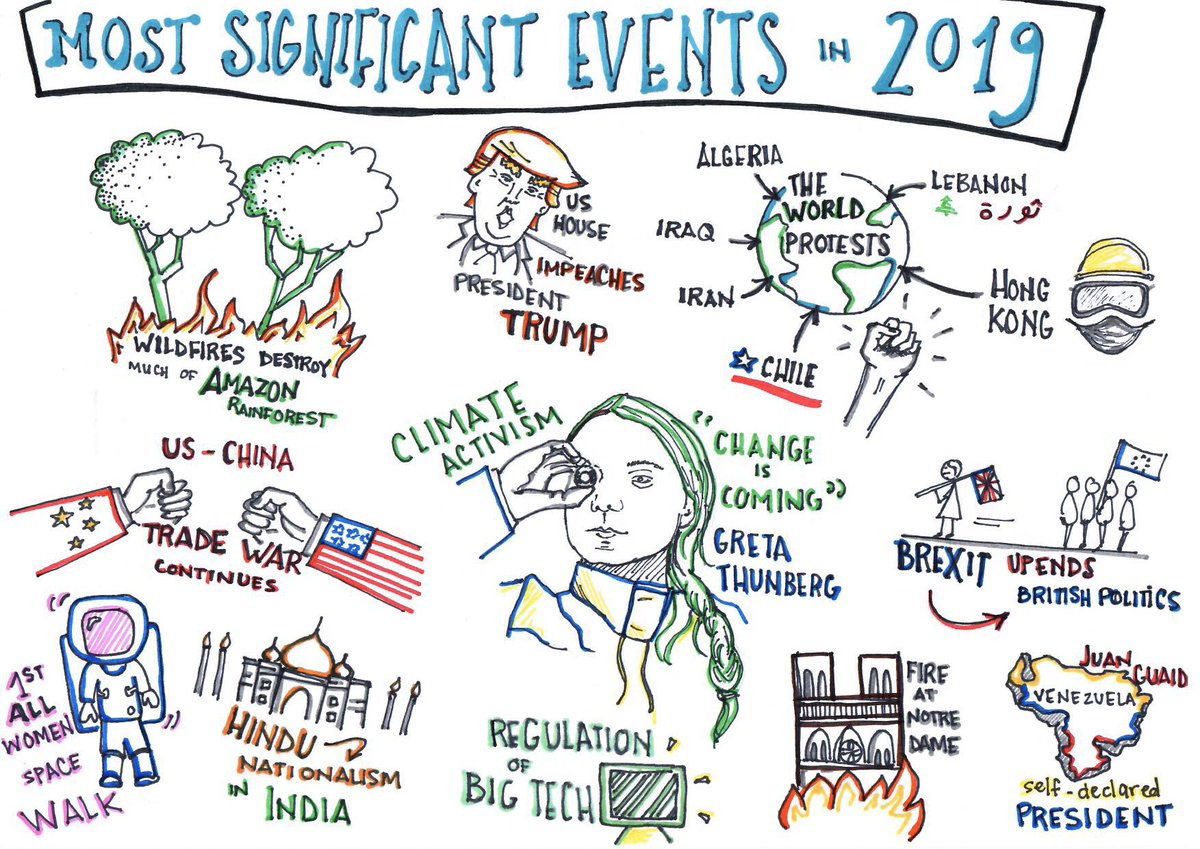 MOST SIGNIFICANT EVENTS IN 2019
WILDFIRES DESTROY
MUCH OF AMAZON
RAINFOREST
US HOUSE
IMPEACHES
PRESIDENT
TRUMP
THE
WORLD
PROTESTS
ALGERIA
IRAQ
IRAN
CHILE
LEBANON
ثورة
HONG
KONG
US - CHINA
TRADE WAR
CONTINUES
CLIMATE
ACTIVISM
"CHANGE
IS
COMING"
GRETA
THUNBERG
BREXIT UPENDS
BRITISH POLITICS
1ST
ALL
WOMEN
SPACE
WALK
HINDU
NATIONALISM
IN INDIA
REGULATION
OF
BIG TECH
FIRE
AT
NOTRE
DAME
JUAN
GUAID
VENEZUELA
self-declared
PRESIDENT